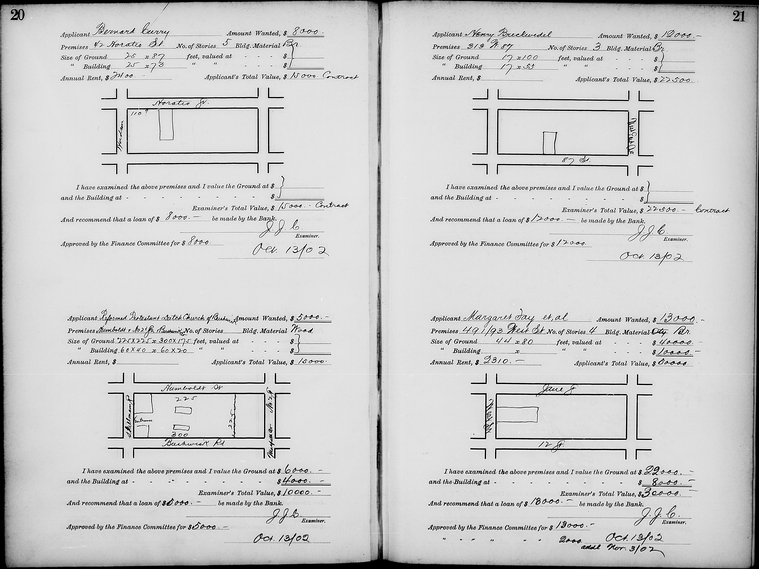 20
Applicant Bernard Curry Amount Wanted, $ 8000
Premises 42 Horatio St No. of Stories 5 Bldg. Material Br
Size of Ground 25 x 87 feet, valued at - - $
" Building 25 x 73 " " - - $
Annual Rent, $ 2400 .. Applicant's Total Value, $ 15000 Contract
Horatio St.
110'
Hudson
I have examined the above premises and I value the Ground at $
and the Building at - - - - - - - $
Examiner's Total Value, $ 15000 - Contract
And recommend that a loan of $ 8000.- be made by the Bank.
J.J.C
Examiner.
Approved by the Finance Committee for $ 8000
Oct. 13/02
Applicant Reformed Protestant Dutch Church of Amount Wanted, $ 5000.-
Premises Humboldt No. of Stories Bldg. Material Wood
Size of Ground 225x225 x 300x175 feet, valued at - - $
" Building 60 x 40 x 60 x 20 " " - - $
Annual Rent, $ Applicant's Total Value, $ 10000
Humboldt St
225
225
300
Bushwick Rd
I have examined the above premises and I value the Ground at $ 6000. -
and the Building at - - - - - - - $ 4000. -
Examiner's Total Value, $ 10000 -
And recommend that a loan of $ 5000.- be made by the Bank.
J.J.C.
Examiner.
Approved by the Finance Committee for $ 5000.-
Oct. 13/02
21
Applicant Henry Amount Wanted, $ 12000.-
Premises 313 W 87 No. of Stories 3 Bldg. Material Br.
Size of Ground 17 x 100 feet, valued at - - $
" Building 17 x 52 " " - - $
Annual Rent, $ Applicant's Total Value, $ 22500.
87 St.
I have examined the above premises and I value the Ground at $
and the Building at - - - - - - - $
Examiner's Total Value, $ 22500 - Contract
And recommend that a loan of $ 12000. - be made by the Bank.
J.J.C
Examiner.
Approved by the Finance Committee for $ 12000
Oct. 13/02
Applicant Margaret Jay et, al Amount Wanted, $ 13000.-
Premises 491/93 West St. No. of Stories 4 Bldg. Material Br.
Size of Ground 44 x 80 feet, valued at - - $ 40000.-
" Building x " " - - $ 10000.-
Annual Rent, $ 2310. - Applicant's Total Value, $
Jane St
West St
12 St.
I have examined the above premises and I value the Ground at $ 22000. -
and the Building at - - - - - - - $ 8000. -
Examiner's Total Value, $ 30000. -
And recommend that a loan of $ 13000. - be made by the Bank.
J.J.C.
Examiner.
Approved by the Finance Committee for $ 13000.-
" " " " " 2000 Oct 13/02
addl Nov. 3/02